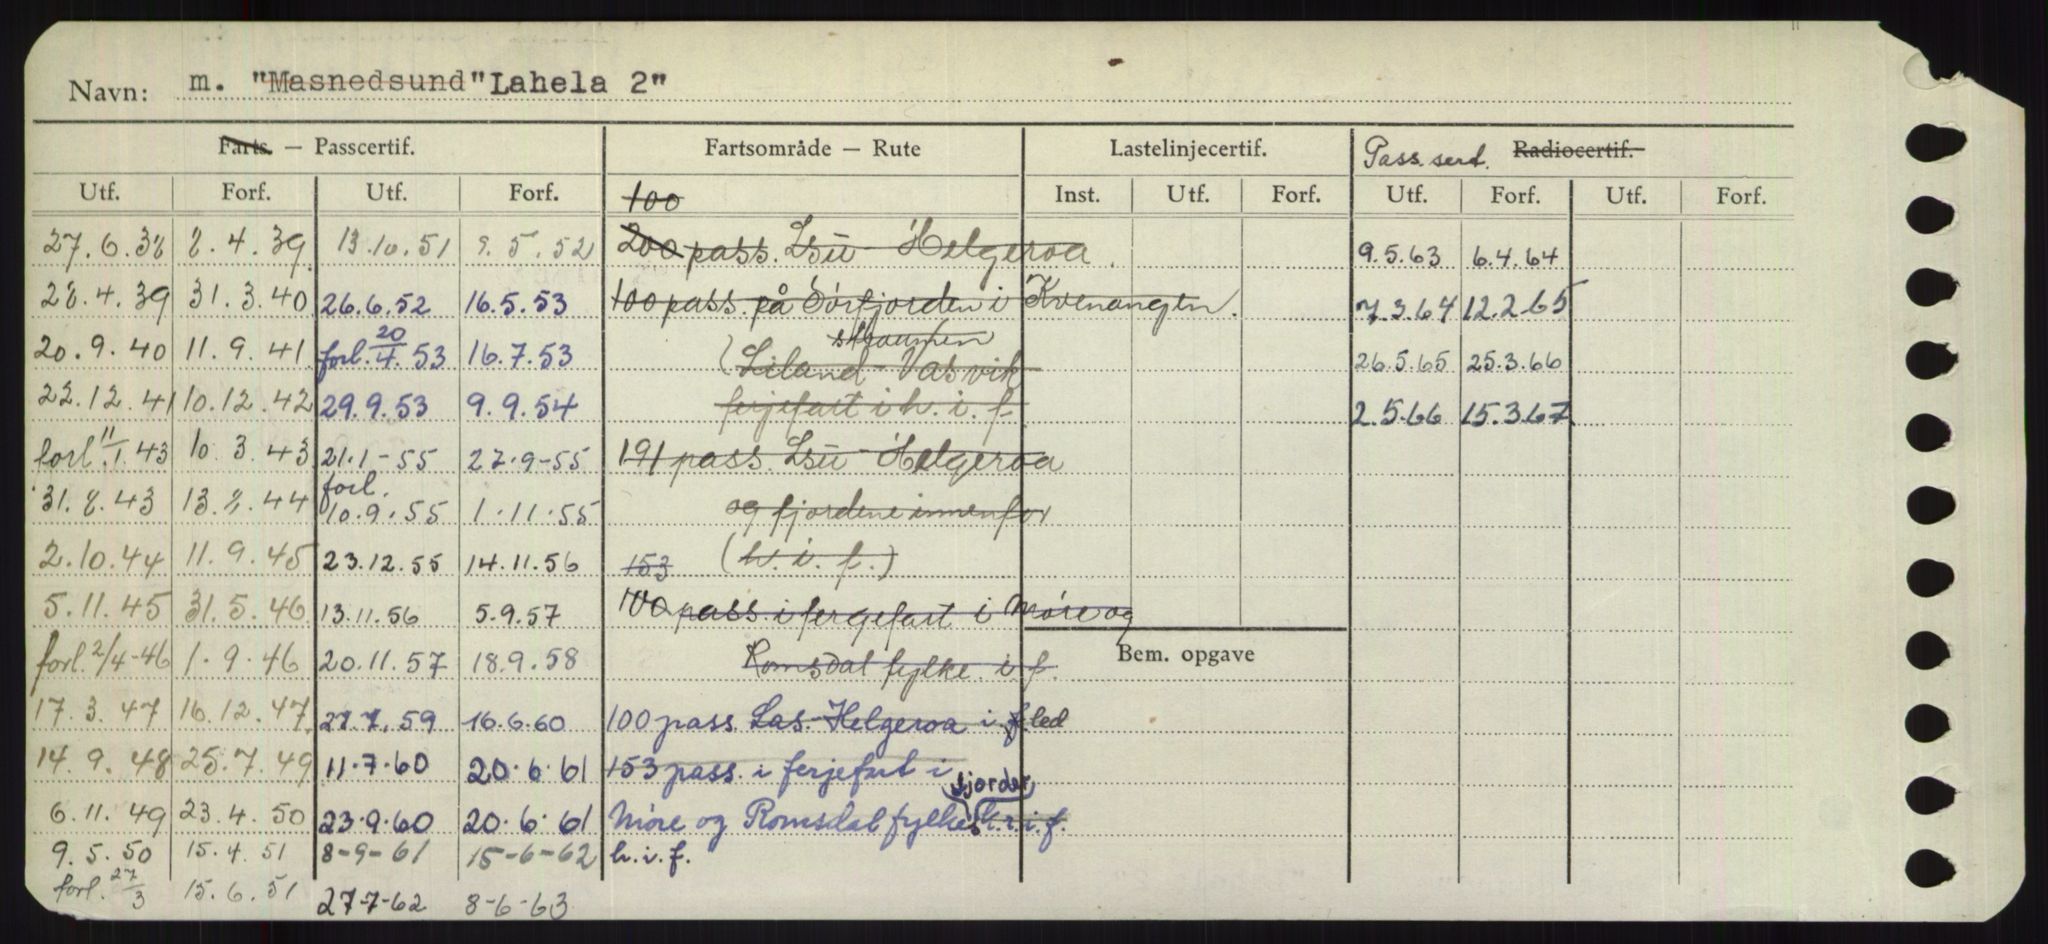 Navn: m. "Masnedsund" Lahela 2"
Farts. — Passcertif. Fartsområde — Rute Lastelinjecertif. Pass. sert. Radiocertif.
Utf. Forf. Utf. Forf. 100 Inst. Utf. Forf. Utf. Forf. Utf. Forf.
27.6.38 8.4.39 13.10.51 9.5.52 200 pass. Lsü - Helgeroa. 9.5.63 6.4.64
28.4.39 31.3.40 26.6.52 16.5.53 100 pass. på Sørfjorden i Kvenangen. 7.3.64 12.2.65
20.9.40 11.9.41 forl. 20/4.53 16.7.53 (Liland - Vasvik 26.5.65 25.3.66
22.12.41 10.12.42 29.9.53 9.9.54 ferjefart i h.i.f. 2.5.66 15.3.67
forl. 11/1.43 10.3.43 21.1-55 27.9-55 191 pass. Lsü - Helgeroa
31.8.43 13.8.44 forl. 10.9.55 1.11.55 og fjordene innenfor
2.10.44 11.9.45 23.12.55 14.11.56 153 (h.i.f.)
5.11.45 31.5.46 13.11.56 5.9.57 100 pass i fergefart i Møre og
forl. 2/4-46 1.9.46 20.11.57 18.9.58 Romsdal fylke i.f. Bem. opgave
17.3.47 16.12.47 27.7.59 16.6.60 100 pass. Las.- Helgeroa i.f. led
14.9.48 25.7.49 11.7.60 20.6.61 153 pass. i ferjefart i
fjorder
6.11.49 23.4.50 23.9.60 20.6.61 Møre og Romsdal fylkes h.r.i.f.
9.5.50 15.4.51 8-9-61 15-6-62 h.i.f.
forl. 27/3 15.6.51 27-7-62 8-6-63